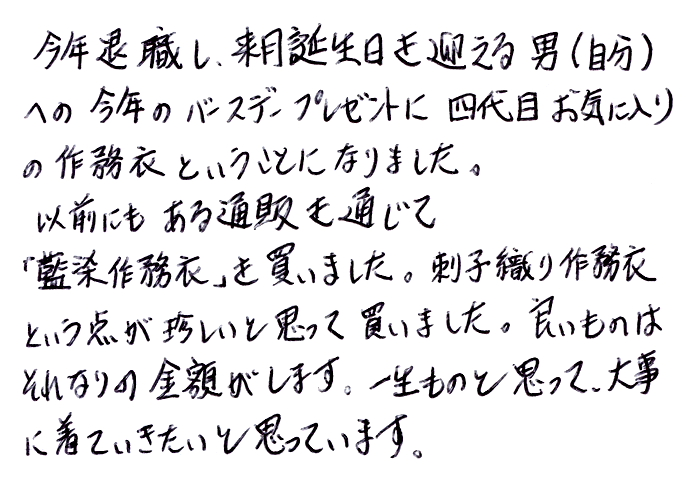 今年退職し、来月誕生日を迎える男（自分）
への今年のバースデープレゼントに四代目お気に入り
の作務衣ということになりました。
以前にもある通販を通じて
「藍染作務衣」を買いました。刺子織り作務衣
という点が珍しいと思って買いました。良いものは
それなりの金額がします。一生ものと思って、大事
に着ていきたいと思っています。